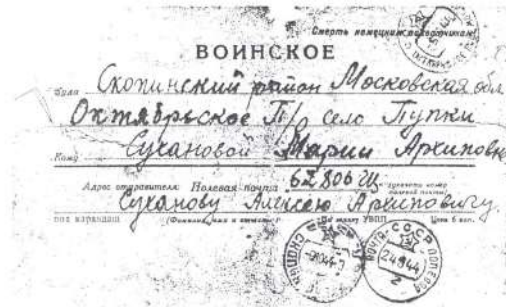 Смерть немецким захватчикам
ВОИНСКОЕ
Куда Скопинский район Московская обл
Октябрьское П/о село Пупки
Кому Сухановой Марии Архиповне
Адрес отправителя: Полевая почта 62806
Суханову Алексею Архиповичу.
(Фамилия, имя и отчество) По заказу УВПП Цена 6 коп.
ПОЧТА СССР ПОЛЕВАЯ
24 9 44
2